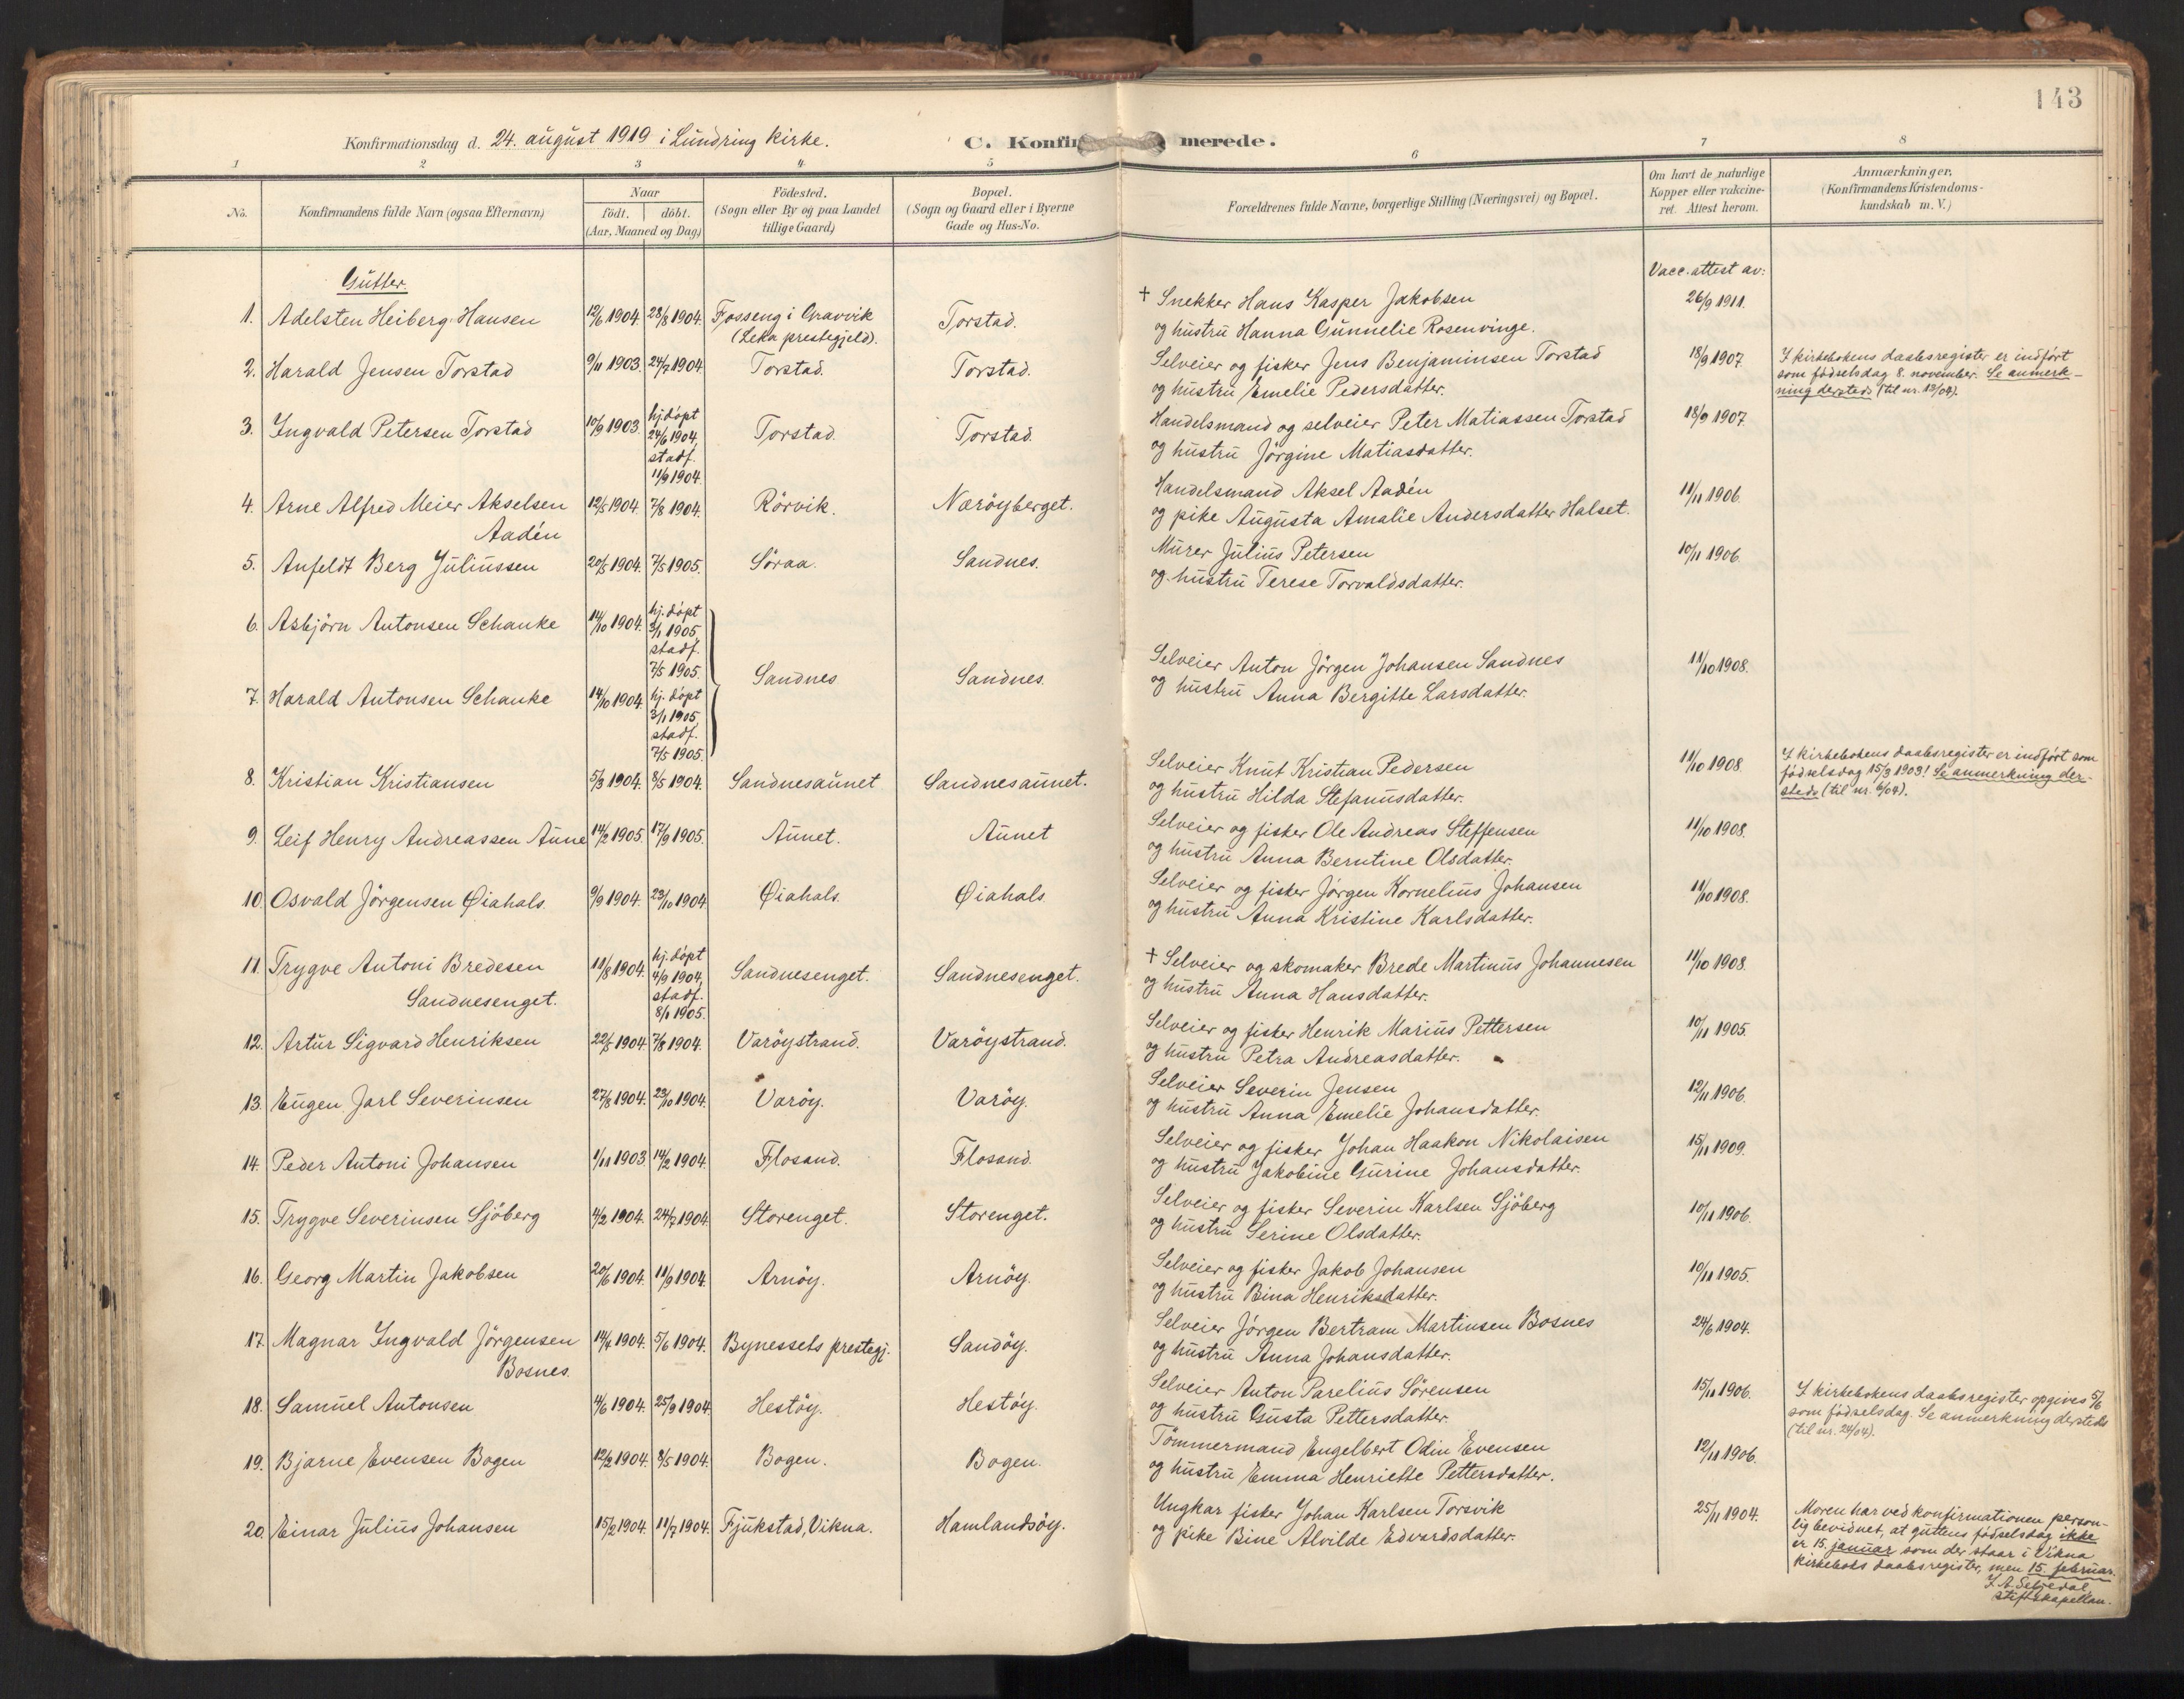 143
Konfirmationsdag d. 24. august 1919 i Lundring kirke.
C. Konfirmerede.
1 2 3 4 5 6 7 8
No.
Konfirmandens fulde Navn (ogsaa Efternavn)
Naar
födt. döbt.
(Aar, Maaned og Dag)
Födested.
(Sogn eller By og paa Landet
tillige Gaard)
Bopæl.
(Sogn og Gaard eller i Byerne
Gade og Hus-No.
Forældrenes fulde Navne, borgerlige Stilling (Næringsvei) og Bopæl.
Om havt de naturlige
Kopper eller vakcine-
ret. Attest herom.
Anmærkninger,
(Konfirmandens Kristendoms-
kundskab m. V.)
Gutter.
Vacc. attest av:
1. Adelsten Heiberg Hansen 12/6 1904. 28/8 1904. Fosseng i Gravvik
(Leka prestegjeld).
Torstad.
† Snekker Hans Kasper Jakobsen
og hustru Hanna Gunnelie Rosenvinge.
26/9 1911.
2. Harald Jensen Torstad 9/11 1903. 24/7 1904. Torstad. Torstad.
Selveier og fisker Jens Benjaminsen Torstad
og hustru Emelie Pedersdatter.
18/9 1907.
I kirkebokens daabsregister er indført
som fødselsdag 8. november. Se anmerk-
ning dersteds (til nr. 13/04).
3. Ingvald Petersen Torstad 10/9 1903. hj. døpt
24/6 1904,
stadf.
11/9 1904.
Torstad. Torstad.
Handelsmand og selveier Peter Matiassen Torstad
og hustru Jörgine Matiasdatter.
18/9 1907.
4. Arne Alfred Meier Akselsen
Aadén
12/5 1904. 7/8 1904. Rörvik. Næröyberget.
Handelsmand Aksel Aadén
og pike Augusta Amalie Andersdatter Halset.
11/11 1906.
5. Anfeldt Berg Juliussen 20/5 1904. 7/5 1905. Söraa. Sandnes.
Murer Julius Petersen
og hustru Terese Torvaldsdatter.
10/11 1906.
6. Asbjörn Antonsen Schanke 14/10 1904. hj. døpt
3/1 1905,
stadf.
7/5 1905.
7. Harald Antonsen Schanke 14/10 1904. hj. døpt
3/1 1905,
stadf.
7/5 1905.
Sandnes Sandnes.
Selveier Anton Jörgen Johansen Sandnes
og hustru Anna Bergitte Larsdatter.
11/10 1908.
8. Kristian Kristiansen 5/3 1904. 8/5 1904. Sandnesaunet Sandnesaunet.
Selveier Knut Kristian Pedersen
og hustru Hilda Stefanusdatter.
11/10 1908.
I kirkebokens daabsregister er indført som
fødselsdag 15/3 1903! Se anmerkning der-
steds (til nr. 6/04).
9. Leif Henry Andreassen Aune 14/2 1905. 17/9 1905. Aunet. Aunet
Selveier og fisker Ole Andreas Steffensen
og hustru Anna Berntine Olsdatter.
11/10 1908.
10. Osvald Jörgensen Øiahals. 9/9 1904. 23/10 1904. Øiahals. Øiahals.
Selveier og fisker Jörgen Kornelius Johansen
og hustru Anna Kristine Karlsdatter.
11/10 1908.
11. Trygve Antoni Bredesen
Sandnesenget.
11/8 1904. hj. døpt
4/9 1904,
stadf.
8/1 1905.
Sandnesenget. Sandnesenget.
† Selveier og skomaker Brede Martinus Johannesen
og hustru Anna Hansdatter.
11/10 1908.
12. Artur Sigvard Henriksen 22/5 1904. 7/8 1904. Varöystrand. Varöystrand.
Selveier og fisker Henrik Marius Pettersen
og hustru Petra Andreasdatter.
10/11 1905.
13. Eugen Jarl Severinsen 27/8 1904. 23/10 1904. Varöy. Varöy.
Selveier Severin Jensen
og hustru Anna Emelie Johansdatter.
12/11 1906.
14. Peder Antoni Johansen 1/11 1903. 14/2 1904. Flosand. Flosand.
Selveier og fisker Johan Haakon Nikolaisen
og hustru Jakobine Gurine Johansdatter.
15/11 1909.
15. Trygve Severinsen Sjöberg 4/2 1904. 24/7 1904. Storenget. Storenget.
Selveier og fisker Severin Karlsen Sjöberg
og hustru Serine Olsdatter.
10/11 1906.
16. Georg Martin Jakobsen 20/6 1904. 11/9 1904. Arnöy. Arnöy.
Selveier og fisker Jakob Johansen
og hustru Bina Henriksdatter.
10/11 1905.
17. Magnar Ingvald Jörgensen
Bosnes.
14/4 1904. 5/6 1904. Bynessets prestegj. Sandöy.
Selveier Jörgen Bertram Martinsen Bosnes
og hustru Anna Johansdatter.
24/6 1904.
18. Samuel Antonsen 4/6 1904. 25/9 1904. Hestöy. Hestöy.
Selveier Anton Parelius Sörensen
og hustru Gusta Pettersdatter.
15/11 1906.
I kirkebokens daabsregister opgives 5/6
som fødselsdag. Se anmerkning dersteds
(til nr. 24/04).
19. Bjarne Evensen Bogen 12/2 1904. 8/5 1904. Bogen. Bogen.
Tömmermand Engelbert Odin Evensen
og hustru Emma Henriette Pettersdatter.
12/11 1906.
20. Einar Julius Johansen 15/2 1904. 11/7 1904. Fjukstad, Vikna. Hamlandsöy.
Ungkar fisker Johan Karlsen Torsvik
og pike Bine Alvilde Edvardsdatter.
25/11 1904.
Moren har ved konfirmationen person-
lig bevidnet, at guttens fødselsdag ikke
er 15. januar som der staar i Vikna
kirkeboks daabsregister, men 15. februar.
stiftskapellan.